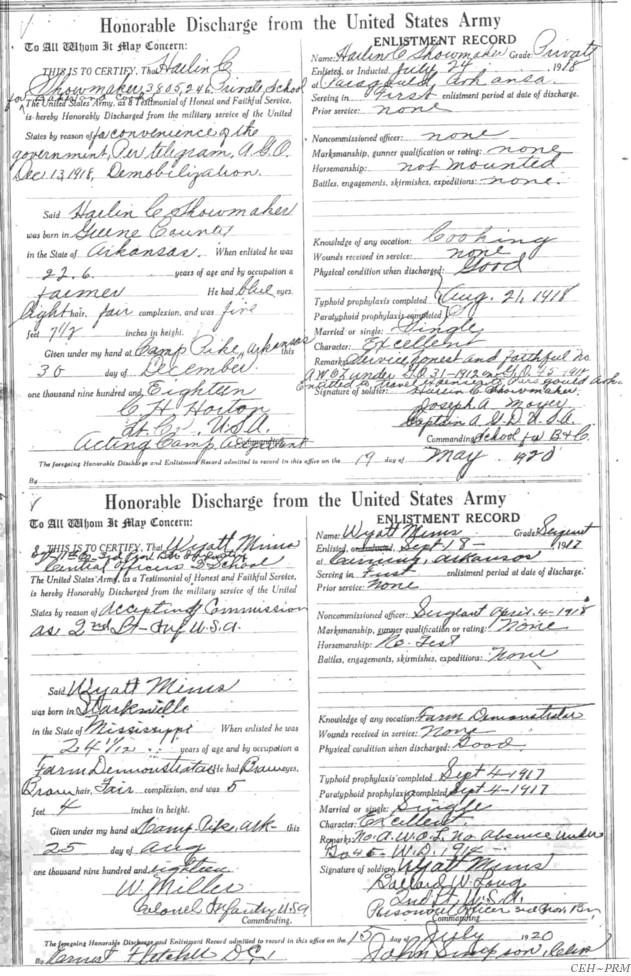 Honorable Discharge from the United States Army
To All Whom It May Concern:
THIS IS TO CERTIFY, That Harlin C
Showmaker, 3,805,246 Private, School
for Bakers & Cooks
The United States Army, as a Testimonial of Honest and Faithful Service,
is hereby Honorably Discharged from the military service of the United
States by reason of for convenience of the
government, Per telegram, A.G.O.
Dec. 13, 1918, Demobilization.
Said Harlin C Showmaker
was born in Greene County
in the State of Arkansas. When enlisted he was
22.6. years of age and by occupation a
farmer He had blue eyes,
light hair, fair complexion, and was five
feet 7 1/2 inches in height.
Given under my hand at Camp Pike, Arkansas this
30 day of December.
one thousand nine hundred and Eighteen
C. H. Horton
Lt. C. U.S.A.
Commanding.
Acting Camp Adjutant
ENLISTMENT RECORD
Name: Harlin C Showmaker Grade: Private
Enlisted, or Inducted, July 24, 1918
at Paragould, Arkansa.
Serving in First enlistment period at date of discharge.
Prior service: none
Noncommissioned officer: none
Marksmanship, gunner qualification or rating: none
Horsemanship: not mounted
Battles, engagements, skirmishes, expeditions: none.
Knowledge of any vocation: Cooking
Wounds received in service: none
Physical condition when discharged: Good
Typhoid prophylaxis completed Aug. 21, 1918
Paratyphoid prophylaxis completed
Married or single: Single
Character: Excellent
Remarks: Service honest and faithful no
A.W.O.L. under G.O. 31-1912 or G.O. 45-1914
Entitled to travel Paragould Ark.
Signature of soldier: Harlin C. Showmaker
Joseph A. Moyer
Captain A.G.D. U.S.A.
Commanding School for B & C.
The foregoing Honorable Discharge and Enlistment Record admitted to record in this office on the 19 day of May 1920
By
Honorable Discharge from the United States Army
To All Whom It May Concern:
THIS IS TO CERTIFY, That Wyatt Mims
Central Officers T School
The United States Army, as a Testimonial of Honest and Faithful Service,
is hereby Honorably Discharged from the military service of the United
States by reason of Accepting Commission
as 2nd Lt - Inf U.S.A.
Said Wyatt Mims
was born in Starkville
in the State of Mississippi When enlisted he was
24 1/12 years of age and by occupation a
Farm Demonstrator He had Brown eyes,
Brown hair, Fair complexion, and was 5
feet 4 inches in height.
Given under my hand at Camp Pike, Ark- this
25 day of Aug
one thousand nine hundred and eighteen
W. Miller
Colonel Infantry U.S.A
Commanding.
ENLISTMENT RECORD
Name: Wyatt Mims Grade: Sergeant
Enlisted, or Inducted, Sept 18- 1917
at Corning, Arkansas
Serving in First enlistment period at date of discharge.
Prior service: None
Noncommissioned officer: Sergeant April 4-1918
Marksmanship, gunner qualification or rating: None
Horsemanship: No Test
Battles, engagements, skirmishes, expeditions: None
Knowledge of any vocation: Farm Demonstrator
Wounds received in service: None
Physical condition when discharged: Good
Typhoid prophylaxis completed Sept 4-1917
Paratyphoid prophylaxis completed Sept 4-1917
Married or single: Single
Character: Excellent
Remarks: No A.W.O.L. No absence under
Go 45- W.D. 1914-
Signature of soldier: Wyatt Mims
Ballard W. Long
2nd Lt, U.S.A.
Personnel Officer 3rd Prov. Bn
Commanding
The foregoing Honorable Discharge and Enlistment Record admitted to record in this office on the 15 day of July 1920
By Ernest D.C. John Simpson, Clerk
CEH~PRM